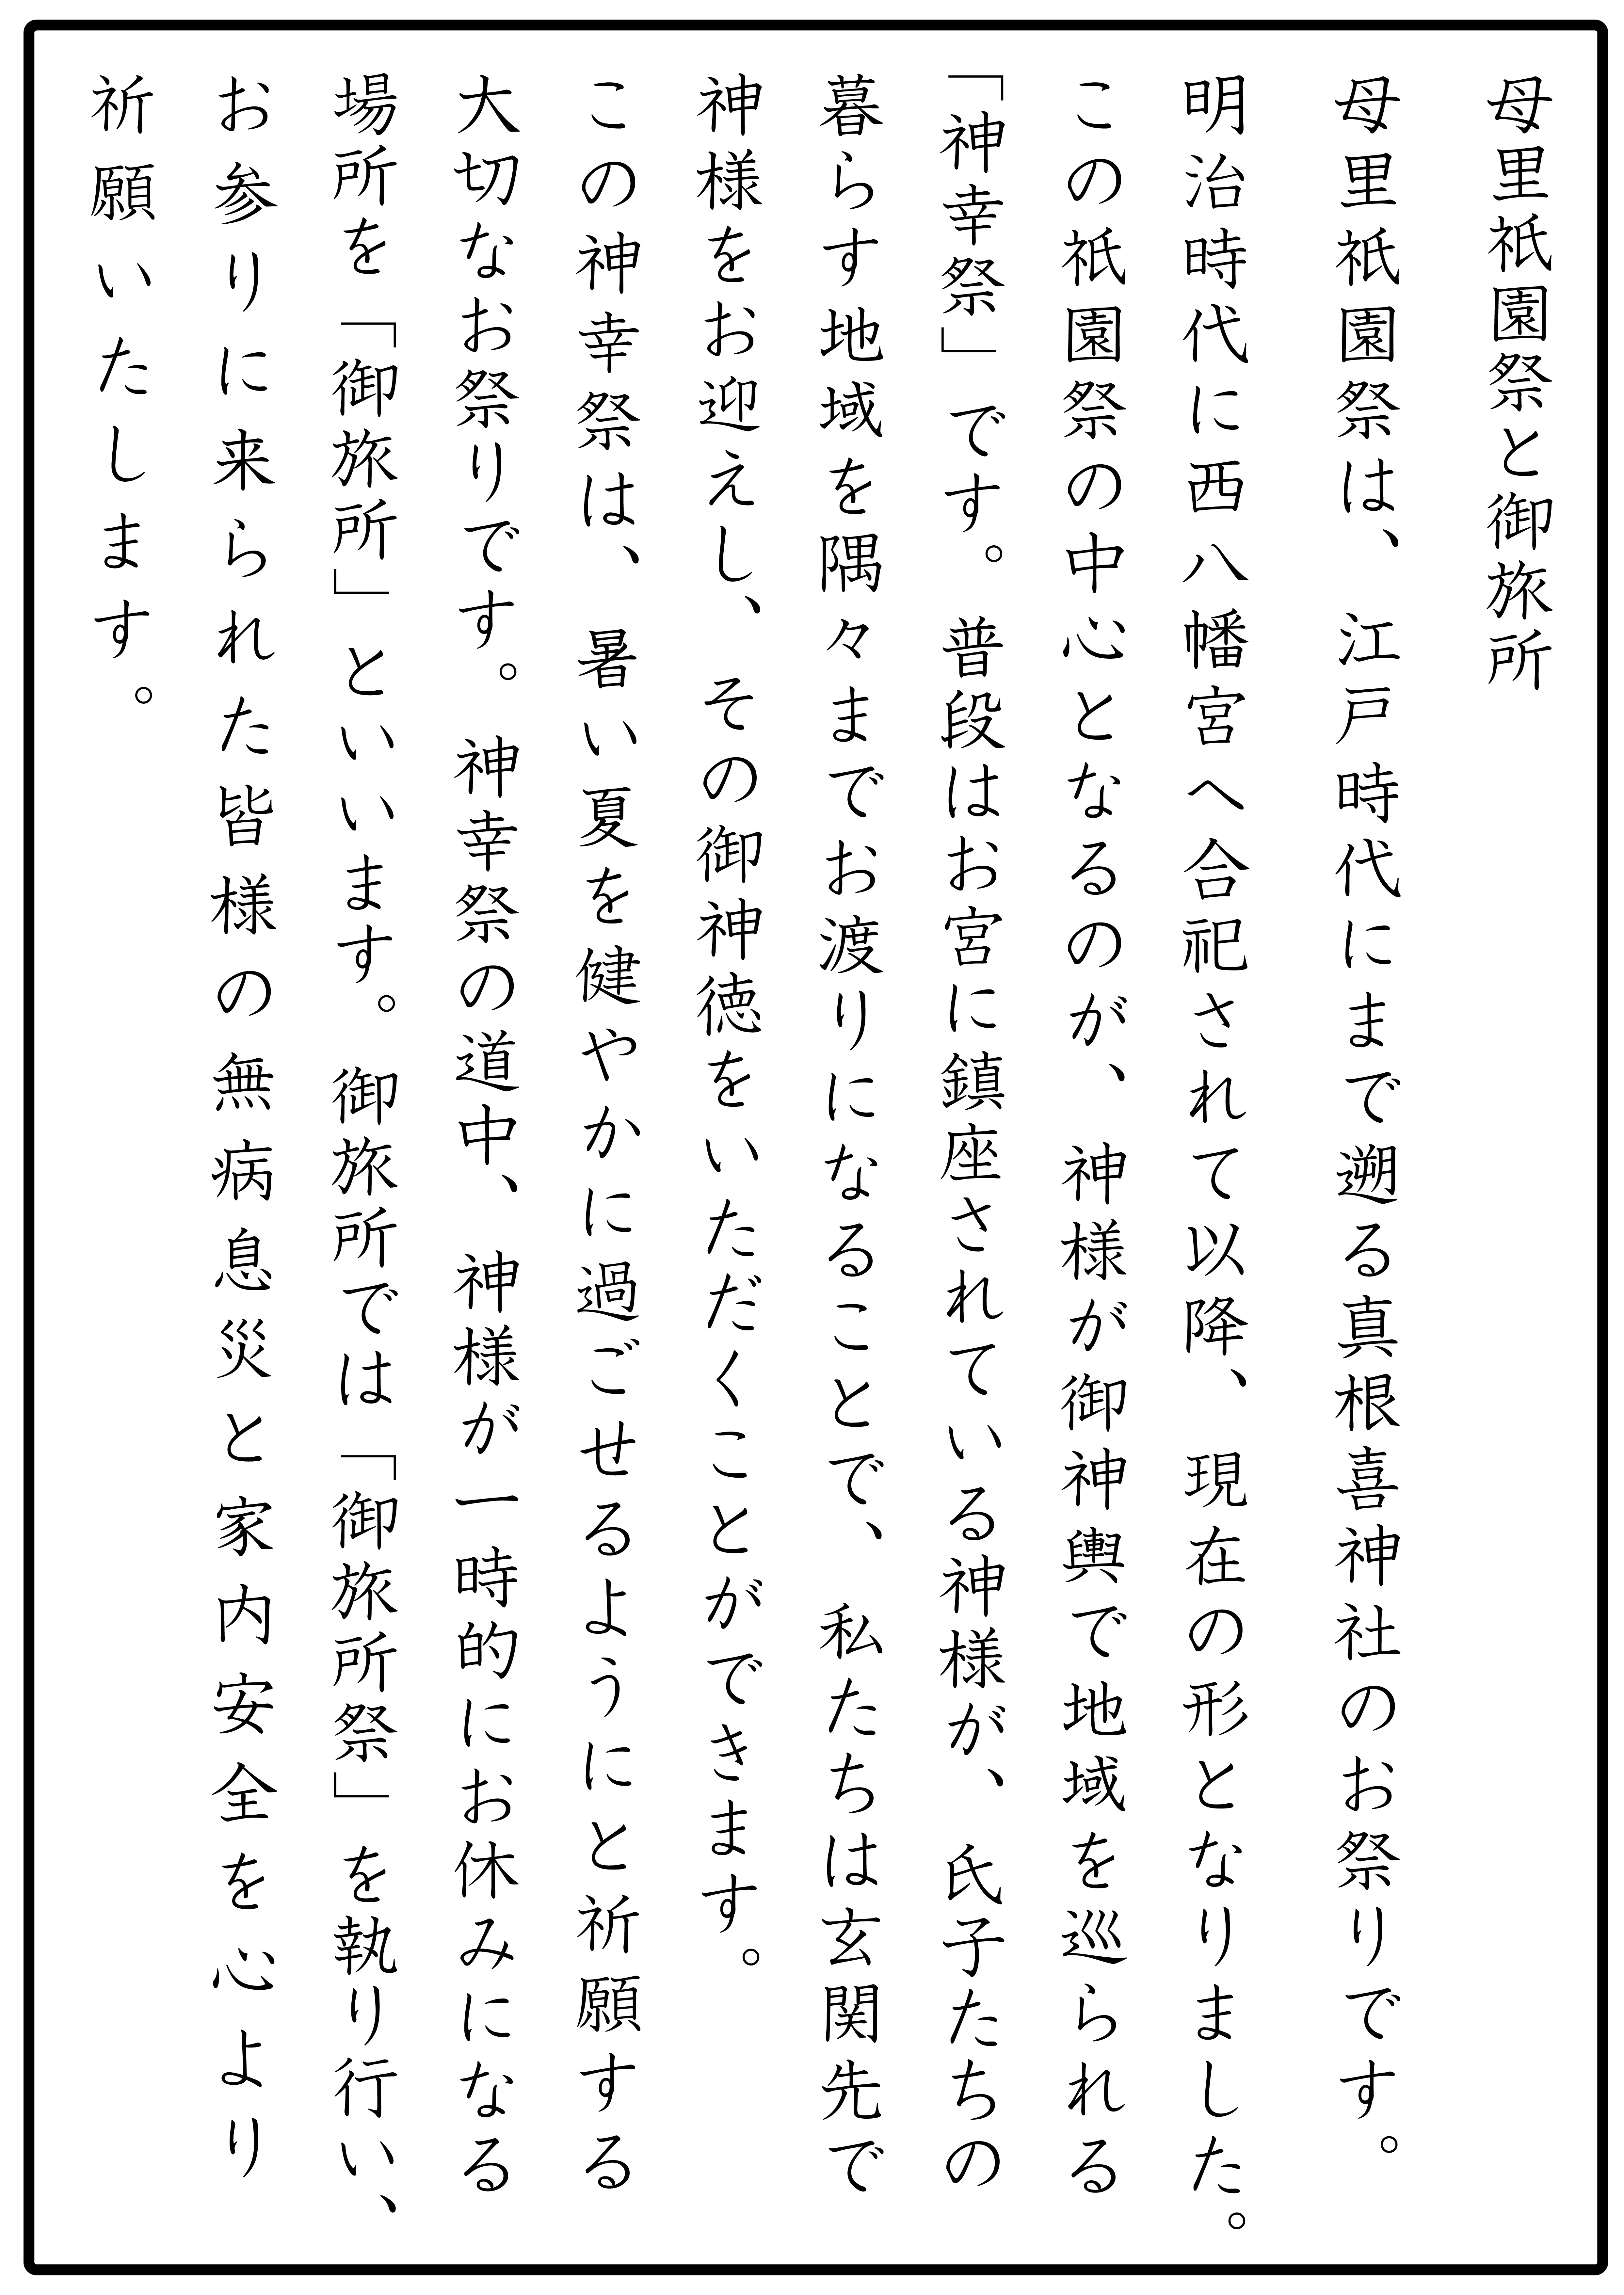 母里祇園祭と御旅所
母里祇園祭は、江戸時代にまで遡る真根喜神社のお祭りです。
明治時代に西八幡宮へ合祀されて以降、現在の形となりました。
この祇園祭の中心となるのが、神様が御神輿で地域を巡られる
「神幸祭」です。普段はお宮に鎮座されている神様が、氏子たちの
暮らす地域を隅々までお渡りになることで、私たちは玄関先で
神様をお迎えし、その御神徳をいただくことができます。
この神幸祭は、暑い夏を健やかに過ごせるようにと祈願する
大切なお祭りです。神幸祭の道中、神様が一時的にお休みになる
場所を「御旅所」といいます。御旅所では「御旅所祭」を執り行い、
お参りに来られた皆様の無病息災と家内安全を心より
祈願いたします。